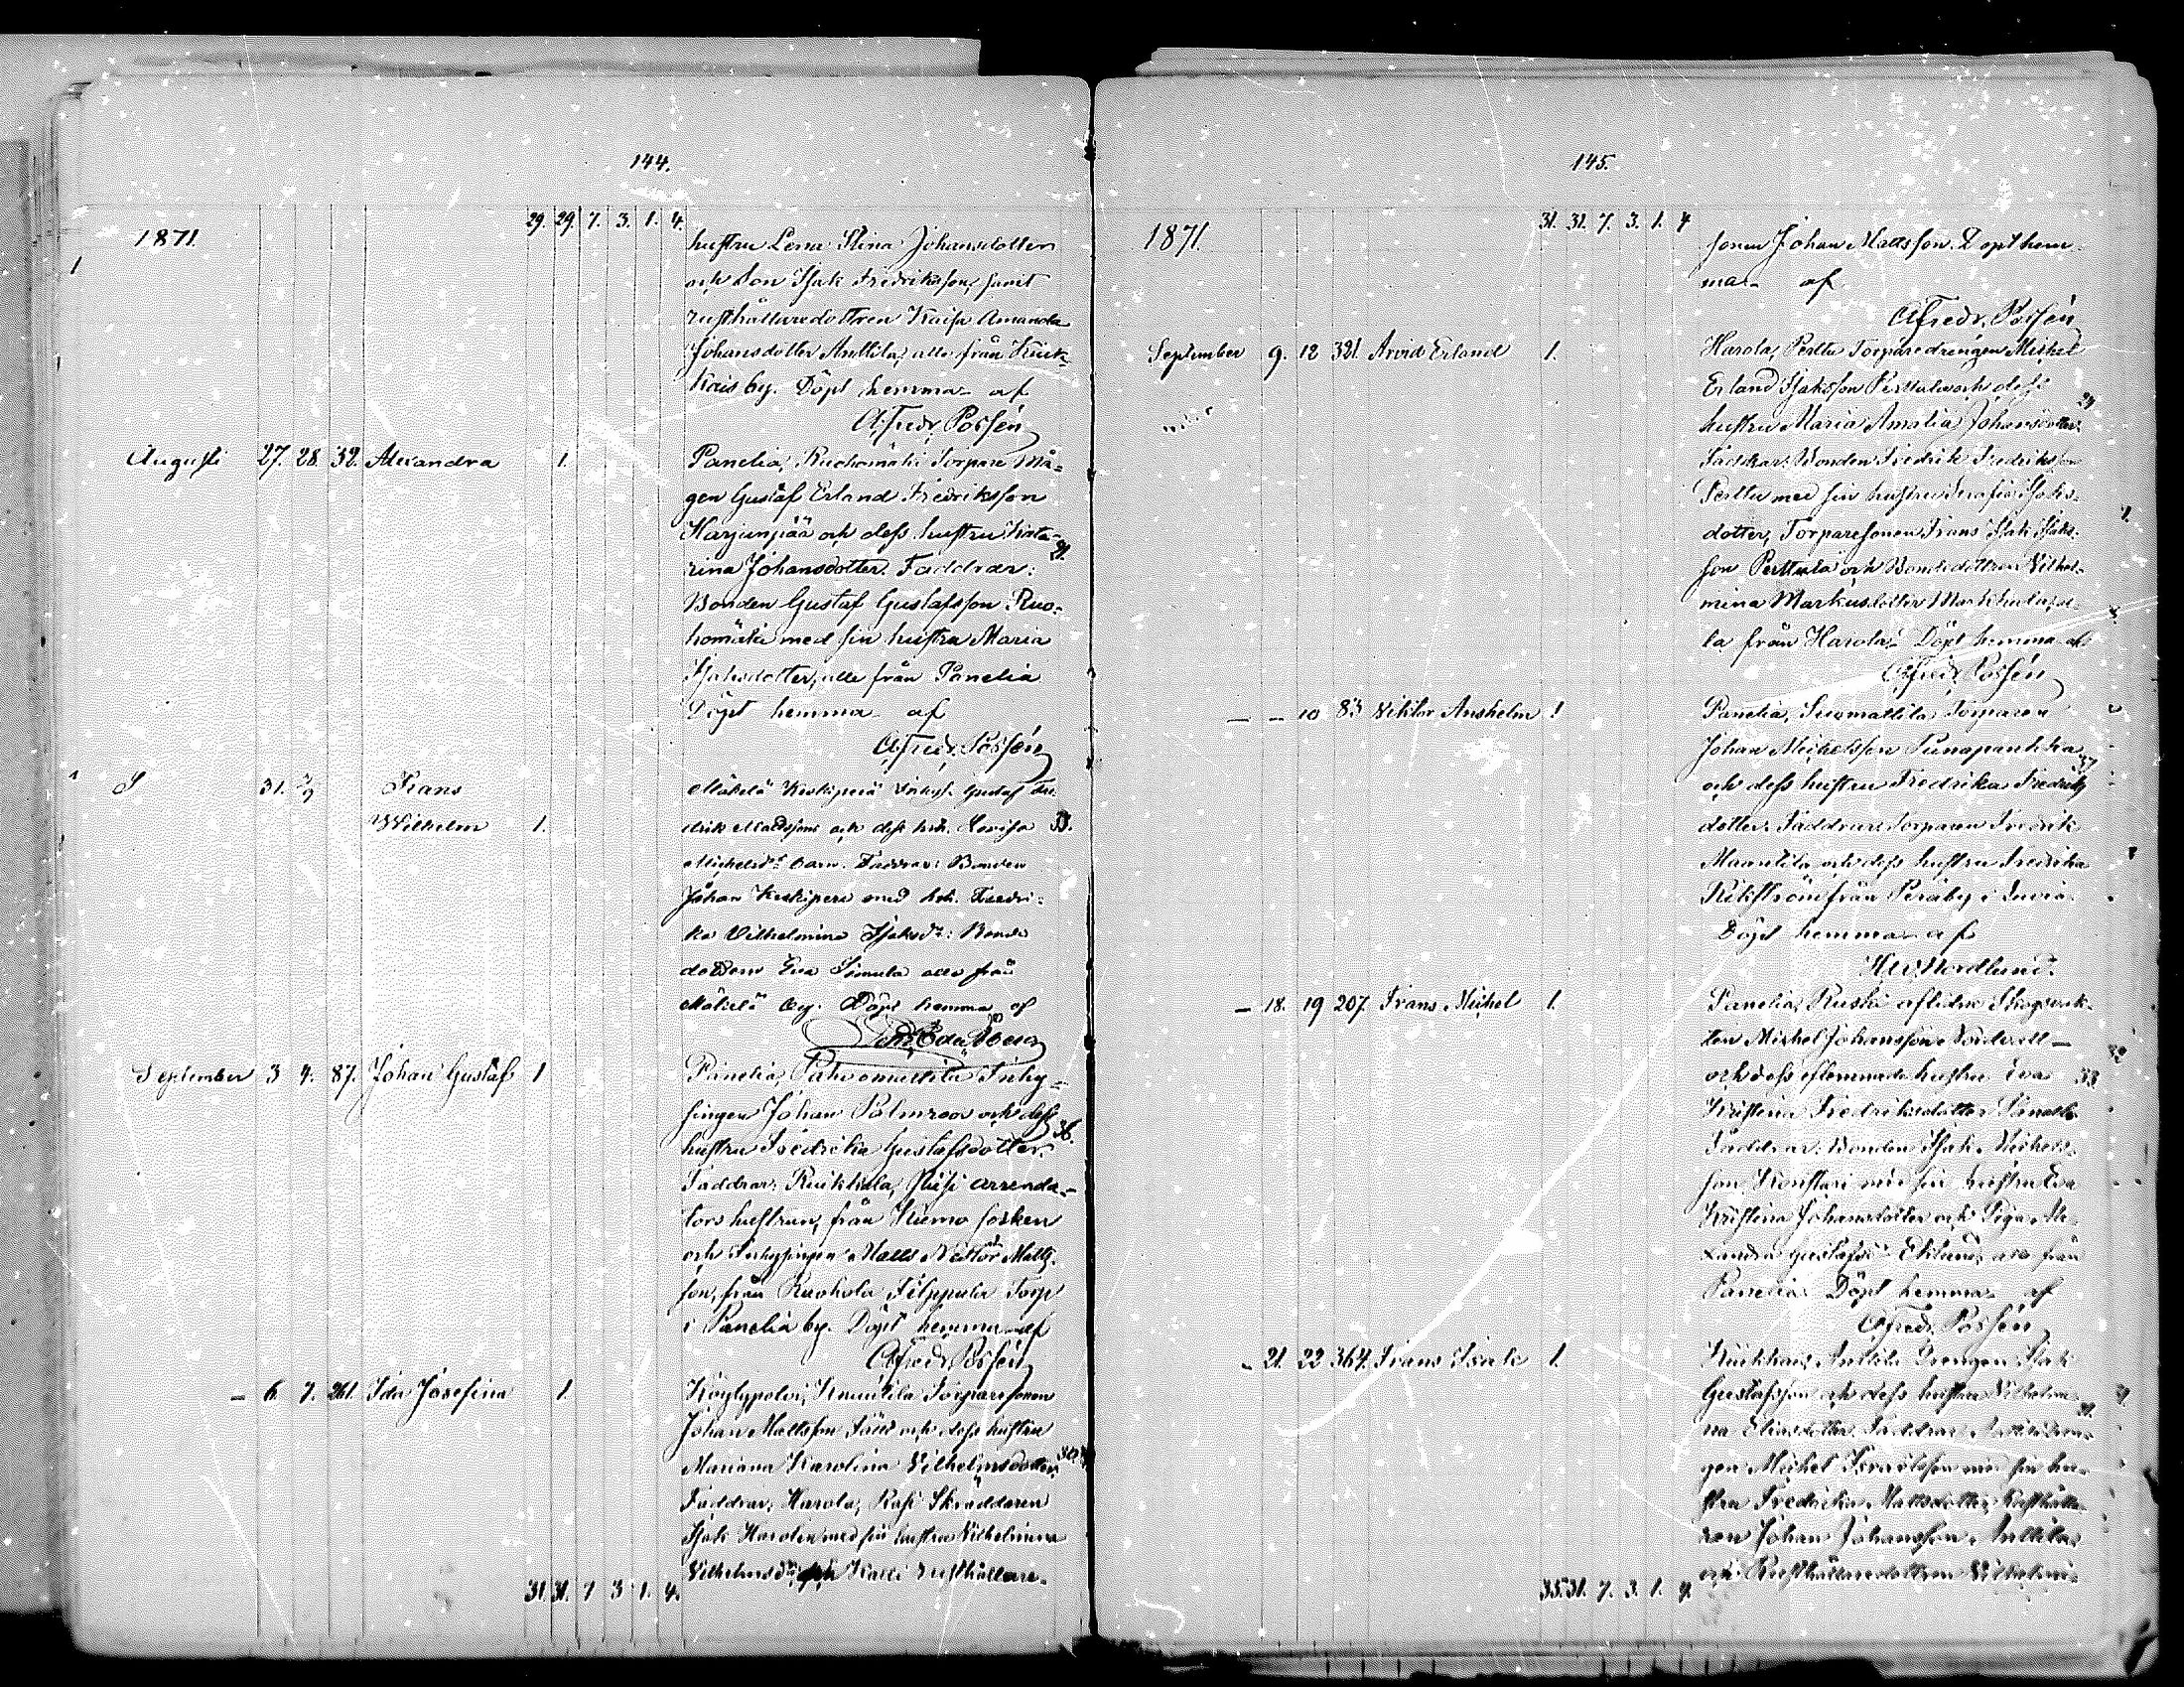 144.
29. 29. 7. 3. 1. 4.
1871.
hustru Lena Stina Johansdotter
och Son Isak Fredriksson, samt
rusthållaredottren Kaisa Amanda
Johansdotter Anttila, alla från Kiuk-
kais by. Döpt hemma af
Alfredr. Possén
Augusti 27. 28. 32. Alexandra 1. Panelia, Ruohomäki Torpare Må-
gen Gustaf Erland Fredriksson
Harjunpää och dess hustru Kata-
rina Johansdotter. Faddrar: 21.
Bonden Gustaf Gustafsson Ruo-
homäki med sin hustru Maria
Isaksdotter, alla från Panelia
Döpt hemma af
Alfredr. Possén
S 31. 3/9 Frans Mäkelä Keskiperä Inhys. Gustaf Fre
Wilhelm 1. drik Mattssons och dess hu. Lovisa 33.
Michelsdr barn. Faddrar: Bonden
Johan Keskiperä med hu. Fredri-
ka Vilhelmina Isaksdr: Bonde
dottern Eva Simula alla från
Mäkelä by. Döpt hemma af
September 3 4. 87. Johan Gustaf 1 Panelia, Inhy-
singen Johan Palmroos och dess
hustru Fredrika Gustafsdotter. 36.
Faddrar: Ruikkala, arrenda-
tors hustrun, från Kiumo socken
och Inhysingen Matts Nestor Matts-
son, från Ruohola Filppula Torp
i Panelia by. Döpt hemma af
Alfredr. Possén
- 6. 7. 261. Ida Josefina 1. Köylypolvi, Knuutila Torparesonen
Johan Mattsson och dess hustru
Mariana Karolina Vilhelmsdotter. 30
Faddrar, Harola, Rasi Skräddaren
Isak Harolin med sin hustru Vilhelmina
Vilhelmsdr, och Kalli rusthållare-
31. 31. 7 3 1. 4.
145.
31. 31. 7. 3. 1. 4
1871.
sonen Johan Mattsson. Döpt hem-
ma af
Alfredr. Possén
September 9. 12 321. Arvid Erland 1. Harola, Perttu Torparedrengen Michel
Erland Isaksson Perttula och dess
hustru Maria Amalia Johansdotter. 24
Faddrar: Bonden Fredrik Fredriksson
Perttu med sin hustru Serafia Isaks-
dotter, Torparesonen Frans Isak Isaks-
son Perttula och Bondedottren Vilhel-
mina Markusdotter Markkula, al-
la från Harola. Döpt hemma af
Alfredr. Possén
- - 10 83 Viktor Anshelm 1 Panelia, Suomattila Torparen
Johan Michelsson 37
och dess hustru Fredrika Fredriks
dotter. Faddrar: Torparen Fredrik
Maantila och dess hustru Fredrika
Rikström från Peräby i Euria.
Döpt hemma af
Nordlund.
- 18. 19 207. Frans Michel 1. Panelia, Ruski aflidne Skogsvak-
ten Michel Johansson Nordvall
och dess eflemnade hustru Eva 33
Kristina Fredriksdotter
Faddrar: Bonden Isak Michels-
son Konstari med sin hustru Eva
Kristina Johansdotter och Piga Ale-
xandra Gustafsdr Eklund, alla från
Panelia. Döpt hemma af
Alfredr. Possén
- 21. 22 364. Frans Isak 1. Kiukkais, Anttila Drengen Isak
Gustafsson och dess hustru Vilhelmi-
na Eliasdotter. Faddrar: 31.
gen Michel Israelsson med sin hu-
stru Fredrika Mattsdotter, Rusthålla-
ren Johan Johansson Anttila
och Rusthållaredottren Vilhelmi-
35. 31. 7. 3. 1. 4.